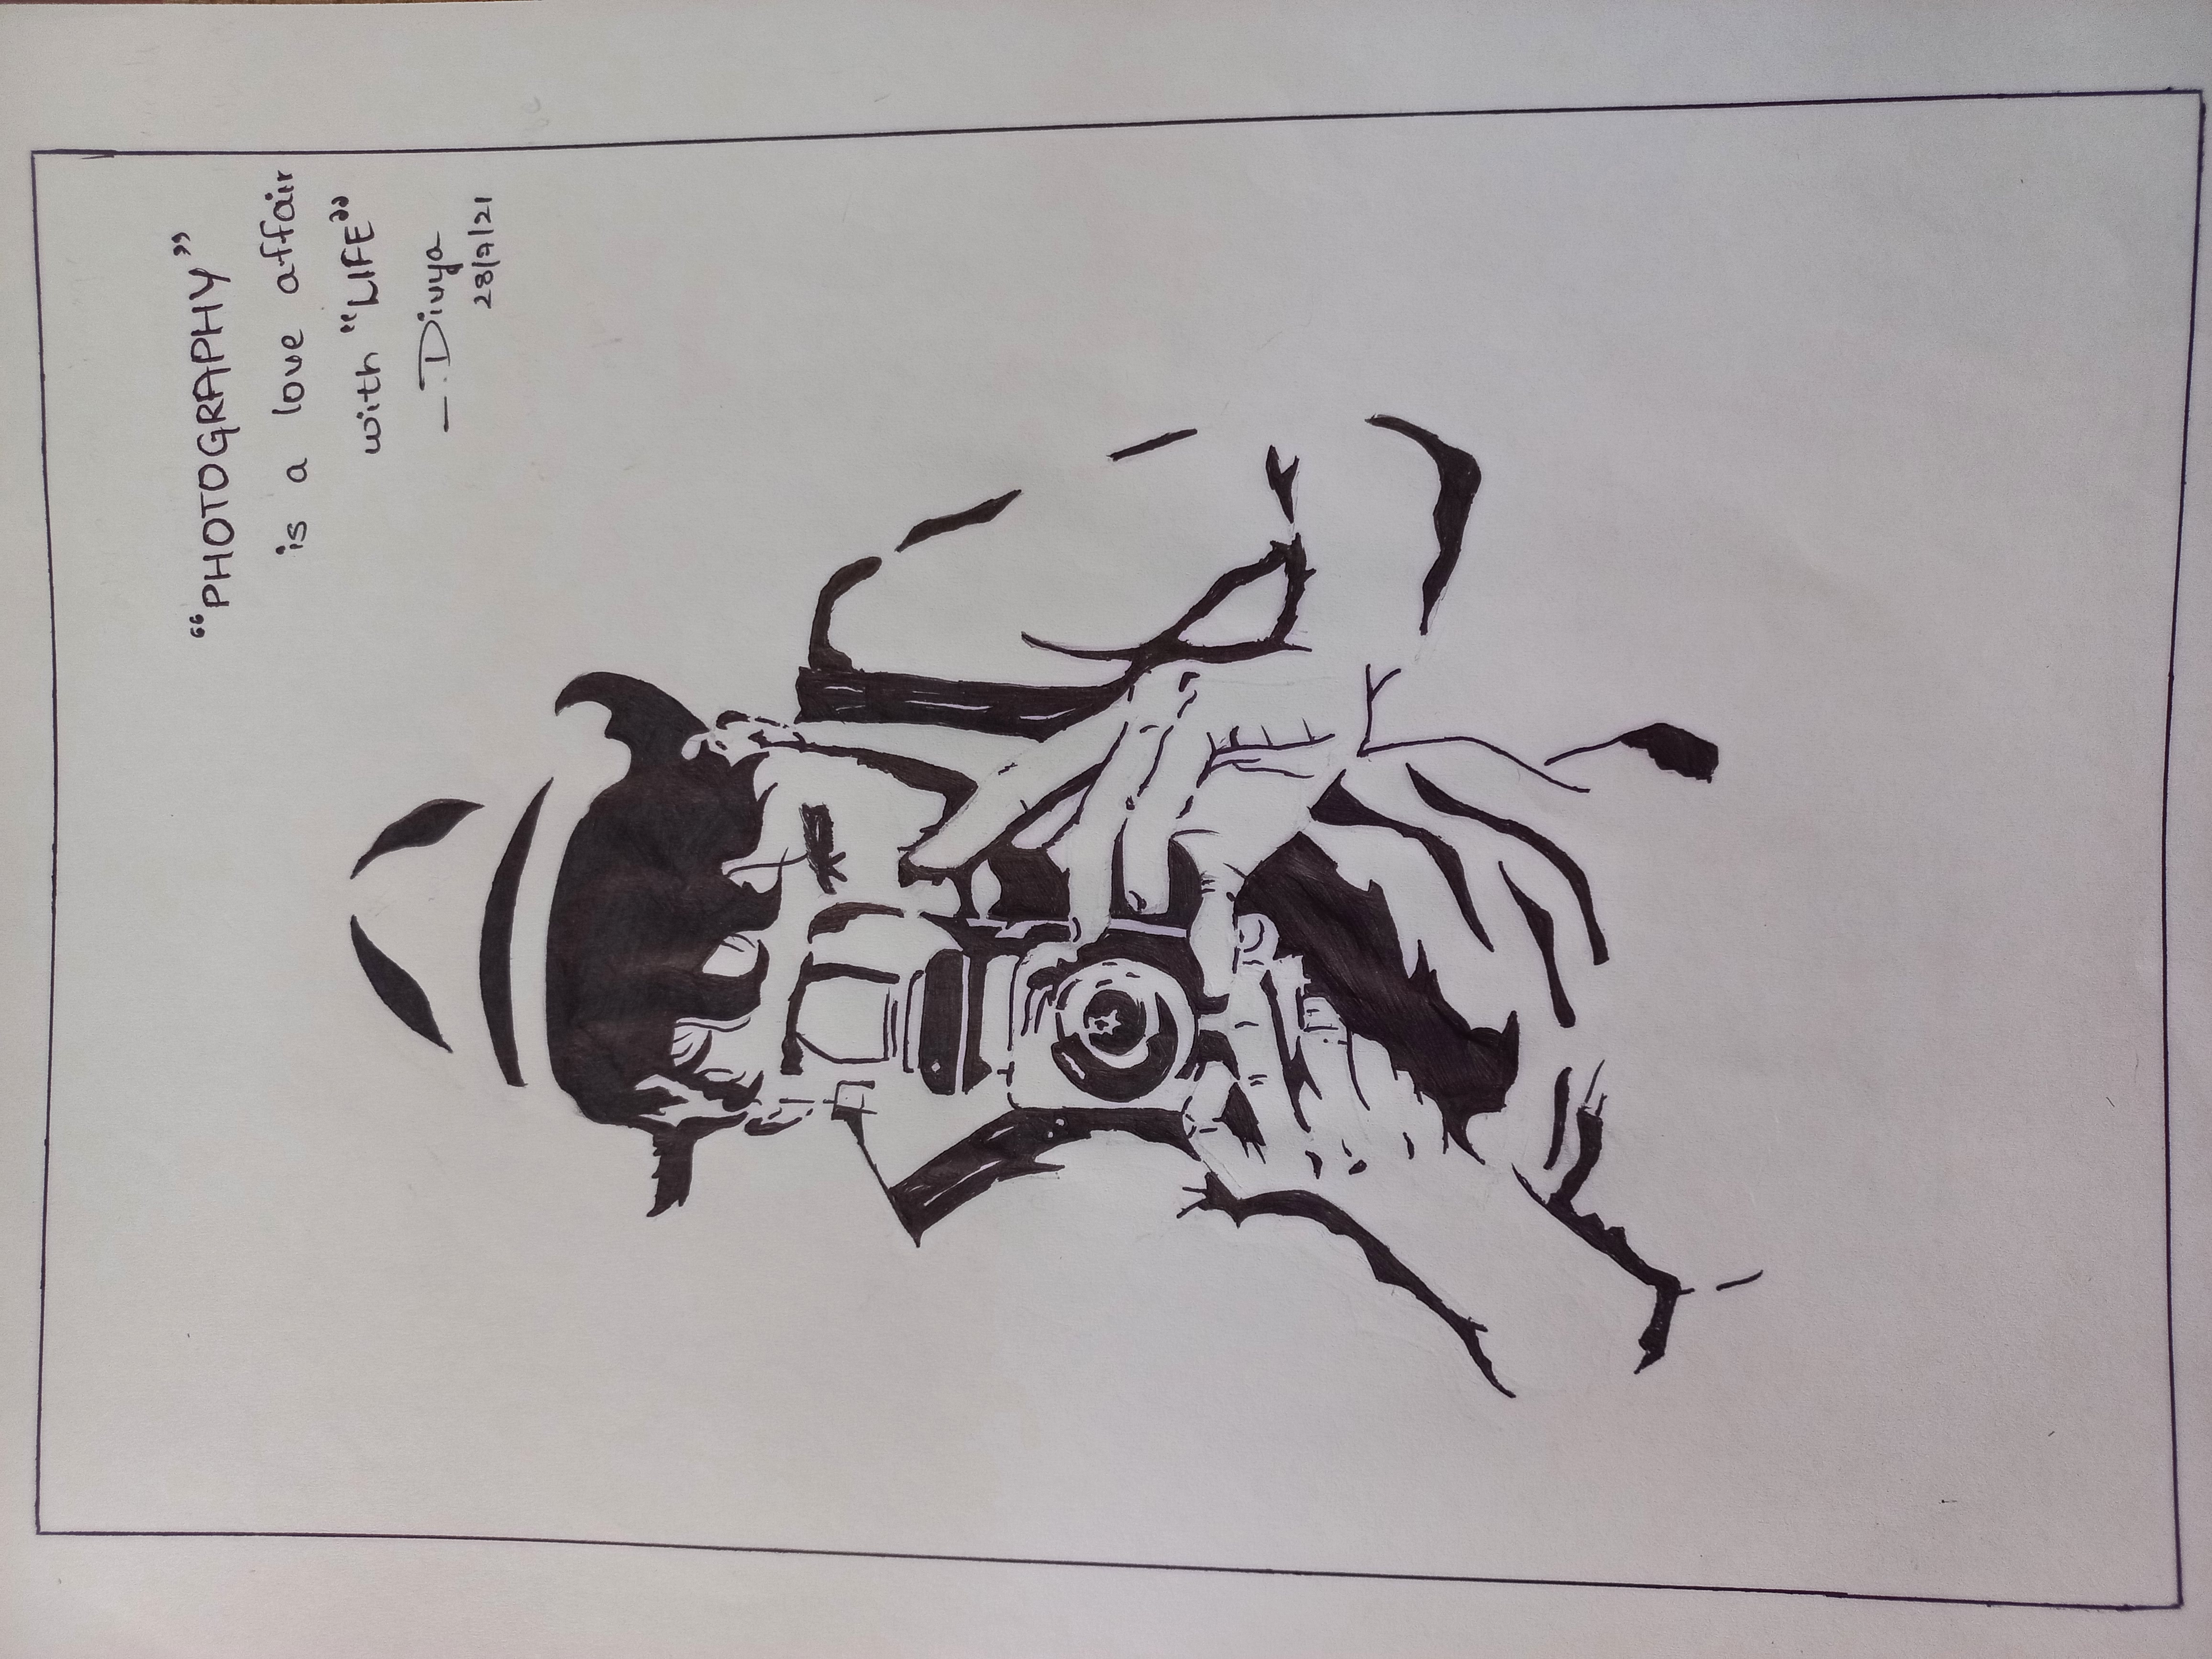 “PHOTOGRAPHY”
is a love affair
with “LIFE”
- Divya
28/7/21